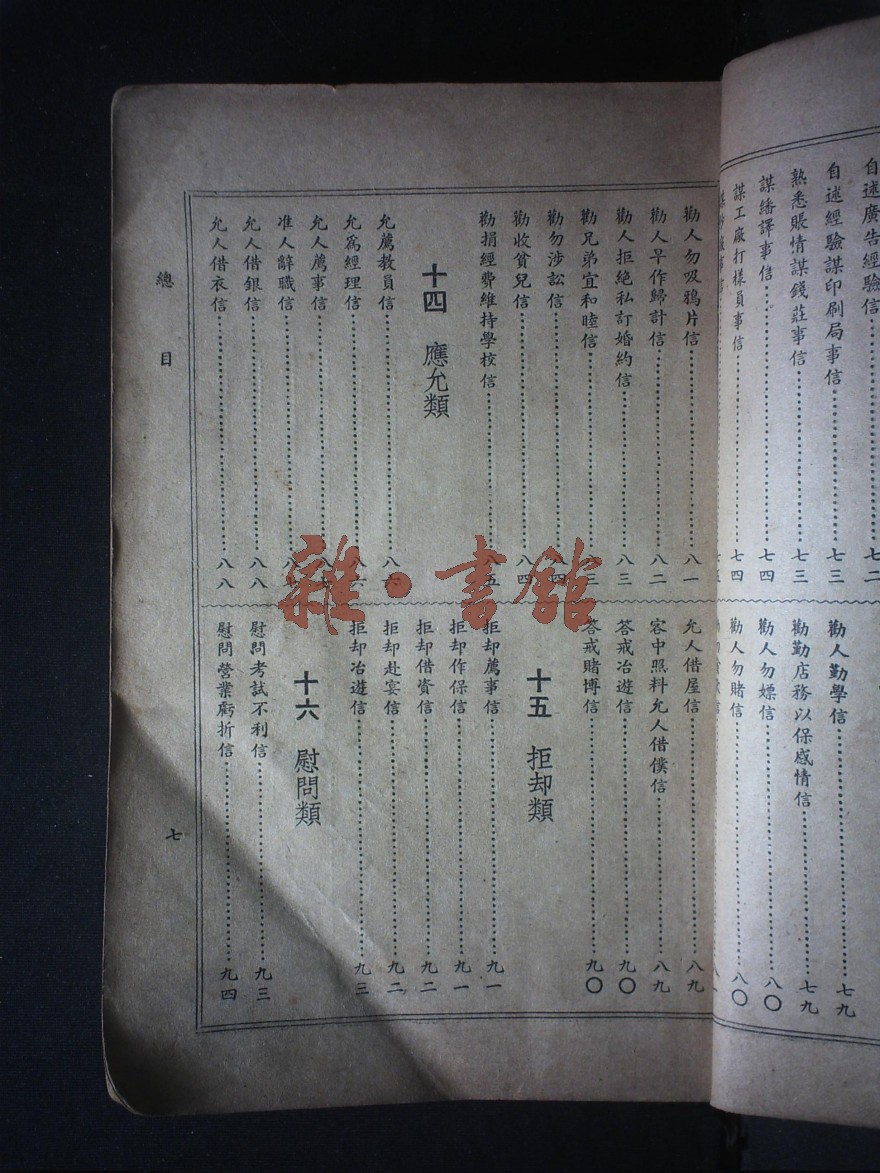 自述廣告經驗信……七二
自述經驗謀印刷局事信……七三
熟悉賬情謀錢莊事信……七三
謀繙譯事信……七四
謀工廠打樣員事信……七四
勸人勤學信……七九
勸勤店務以保感情信……七九
勸人勿嫖信……八〇
勸人勿賭信……八〇
勸人勿吸鴉片信……八一
勸人早作歸計信……八二
勸人拒絕私訂婚約信……八三
勸兄弟宜和睦信……八三
勸勿涉訟信……八四
勸收貧兒信……八四
勸捐經費維持學校信……八五
十四 應允類
允薦教員信……八六
允爲經理信……八六
允人薦事信
准人辭職信
允人借銀信……八八
允人借衣信……八八
允人借屋信……八九
客中照料允人借僕信……八九
答戒冶遊信……九〇
答戒賭博信……九〇
十五 拒却類
拒却薦事信……九一
拒却作保信……九一
拒却借資信……九二
拒却赴宴信……九二
拒却冶遊信……九三
十六 慰問類
慰問考試不利信……九三
慰問營業虧折信……九四
總目
七
雜·書館